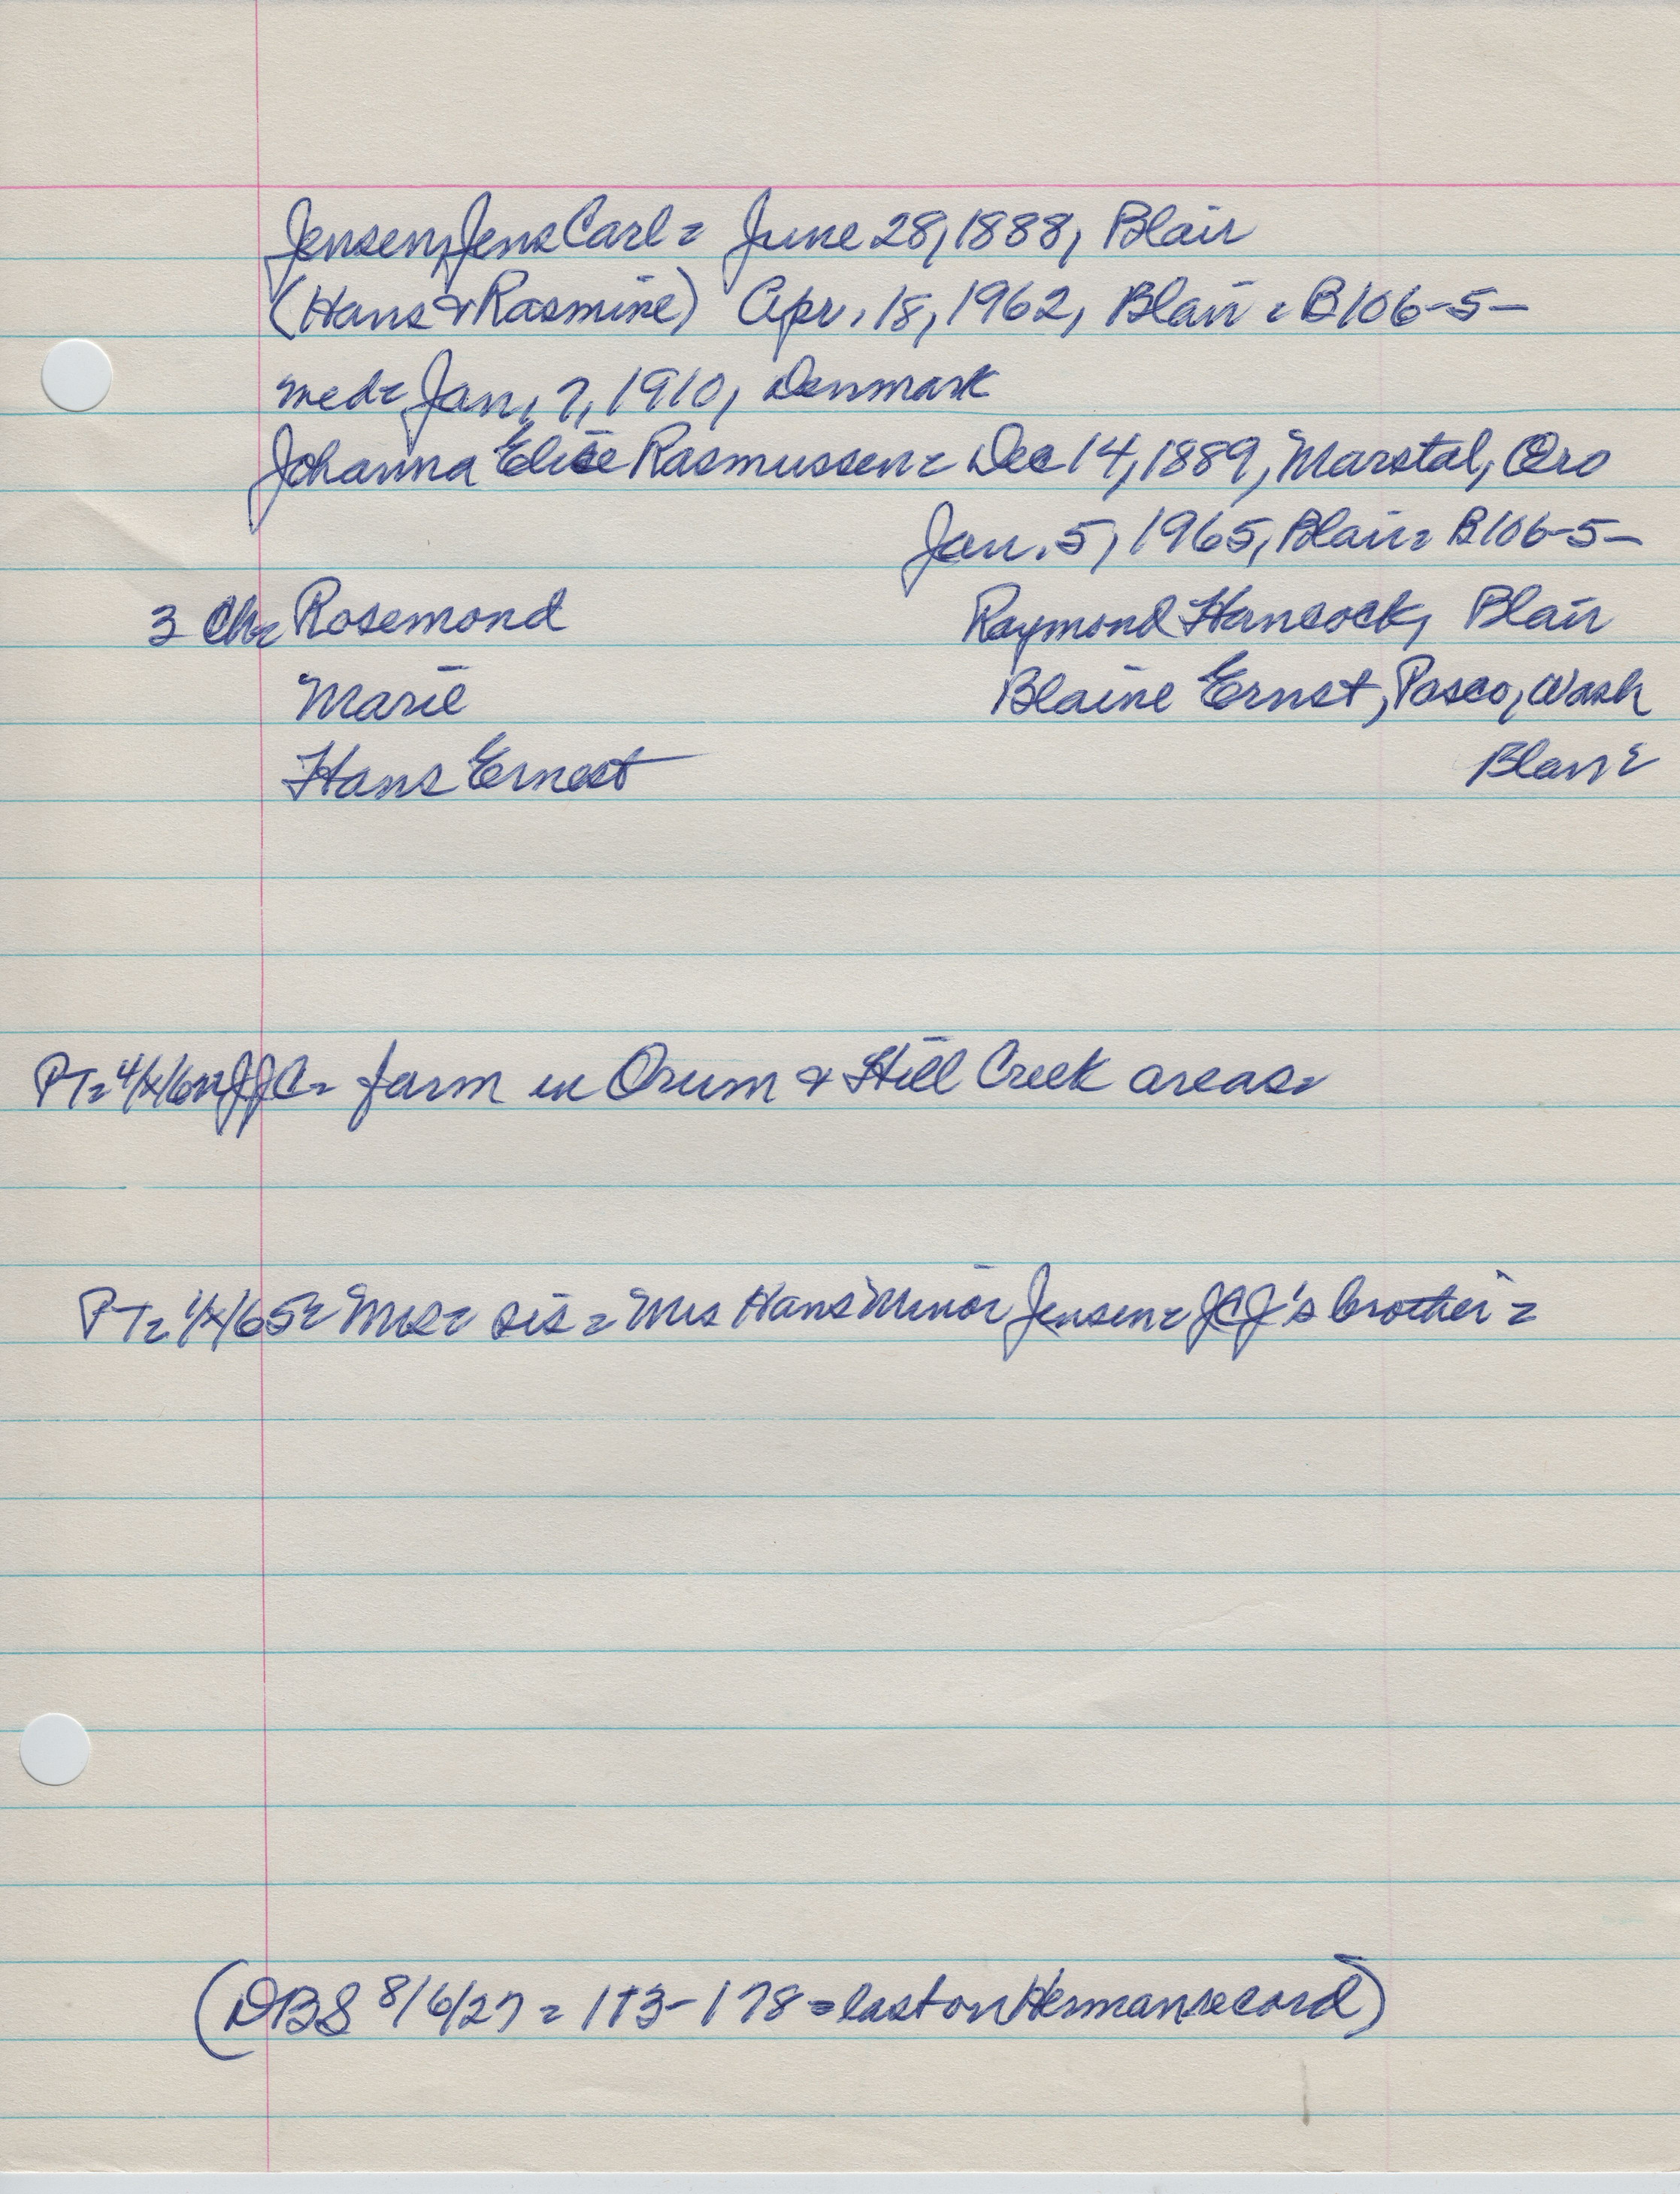 Jensen, Jens Carl = June 28, 1888, Blair
(Hans & Rasmine) Apr. 18, 1962, Blair = B106-5-
med = Jan, 7, 1910, Denmark
Johanna Elise Rasmussen = Dec 14, 1889, Marstal, Æro
Jan. 5, 1965, Blair = B106-5-
3 Ch = Rosemond Raymond Hancock, Blair
Marie Blaine Ernst, Pasco, Wash
Hans Ernest Blair =
PT = 4/x/62 = JJC = farm in Orum & Still Creek areas =
PT = 1/x/65 = sis = Mrs Hans Minor Jensen = JCJ's brother =
(DBS 8/6/27 = 173-178 = last on Herman record)